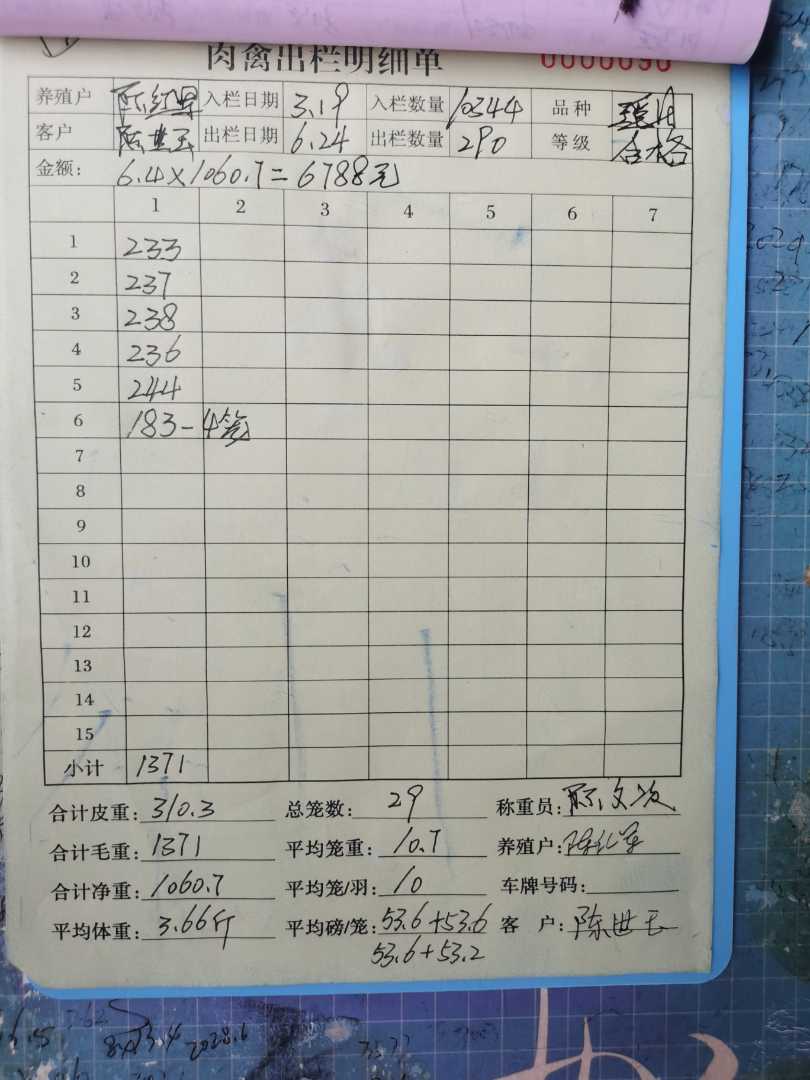 肉禽出栏明细单 0000090
养殖户 陈红军 入栏日期 3.19 入栏数量 10344 品种
客户 陈世玉 出栏日期 6.24 出栏数量 290 等级 合格
金额: 6.4×1060.7=6788元
1 2 3 4 5 6 7
1 233
2 237
3 238
4 236
5 244
6 183-4笼
7
8
9
10
11
12
13
14
15
小计 1371
合计皮重: 310.3 总笼数: 29 称重员: 陈文波
合计毛重: 1371 平均笼重: 10.7 养殖户: 陈红军
合计净重: 1060.7 平均笼/羽: 10 车牌号码:
平均体重: 3.66斤 平均磅/笼: 53.6+53.6 客 户: 陈世玉
53.6+53.2